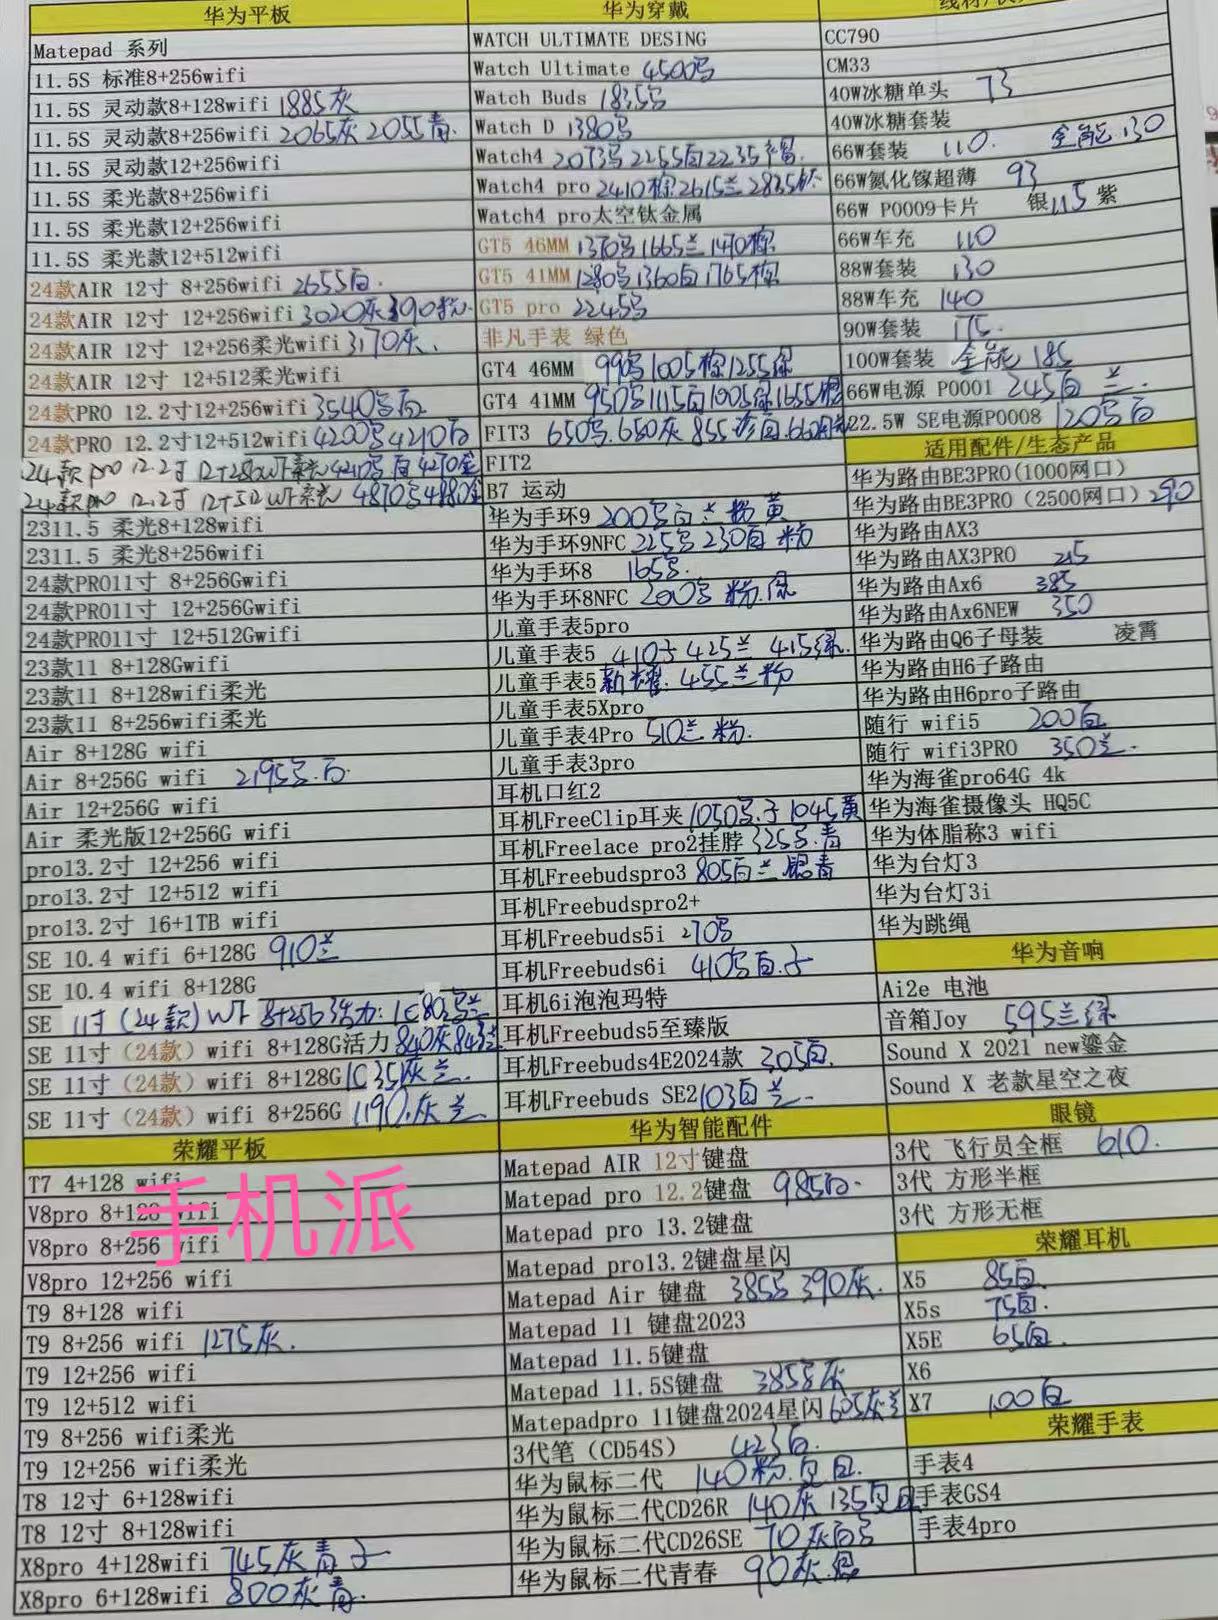 华为平板
Matepad 系列
11.5S 标准8+256wifi
11.5S 灵动款8+128wifi 1885灰
11.5S 灵动款8+256wifi 2065灰 2055青.
11.5S 灵动款12+256wifi
11.5S 柔光款8+256wifi
11.5S 柔光款12+256wifi
11.5S 柔光款12+512wifi
24款AIR 12寸 8+256wifi 2655白.
24款AIR 12寸 12+256wifi 3020灰 粉.
24款AIR 12寸 12+256柔光wifi 3170灰.
24款AIR 12寸 12+512柔光wifi
24款PRO 12.2寸12+256wifi 3540号白
24款PRO 12.2寸12+512wifi 4200号4210白
24款pro 12.2寸 12+256wifi柔光4210号白4270金
24款pro 12.2寸 12+512wifi柔光 4870号4880金
2311.5 柔光8+128wifi
2311.5 柔光8+256wifi
24款PRO11寸 8+256Gwifi
24款PRO11寸 12+256Gwifi
24款PRO11寸 12+512Gwifi
23款11 8+128Gwifi
23款11 8+128wifi柔光
23款11 8+256wifi柔光
Air 8+128G wifi
Air 8+256G wifi 2195号.白.
Air 12+256G wifi
Air 柔光版12+256G wifi
pro13.2寸 12+256 wifi
pro13.2寸 12+512 wifi
pro13.2寸 16+1TB wifi
SE 10.4 wifi 6+128G 910兰
SE 10.4 wifi 8+128G
SE 11寸(24款)wifi 8+256活力: 号兰
SE 11寸（24款）wifi 8+128G活力 840灰
SE 11寸（24款）wifi 8+128G 1035灰兰.
SE 11寸（24款）wifi 8+256G 1190.灰兰.
荣耀平板
T7 4+128 wifi
V8pro 8+128 wifi
V8pro 8+256 wifi
V8pro 12+256 wifi
T9 8+128 wifi
T9 8+256 wifi 1275灰.
T9 12+256 wifi
T9 12+512 wifi
T9 8+256 wifi柔光
T9 12+256 wifi柔光
T8 12寸 6+128wifi
T8 12寸 8+128wifi
X8pro 4+128wifi 745灰青子
X8pro 6+128wifi 800灰青.
手机派
华为穿戴
WATCH ULTIMATE DESING
Watch Ultimate 4500号
Watch Buds 1835号
Watch D 1380号
Watch4 2073号2255白2235
Watch4 pro 2410棕2615兰2835钛
Watch4 pro太空钛金属
GT5 46MM 1370号1665兰1470棕
GT5 41MM 1280号1360白1765棕
GT5 pro 2245号
非凡手表 绿色
GT4 46MM 990号1005棕1255绿
GT4 41MM 950号1115白1005绿1655银
FIT3 650号.650灰 855
FIT2
B7 运动
华为手环9 200号白兰粉黄
华为手环9NFC 225号 230白粉
华为手环8 165号.
华为手环8NFC 200号 粉.绿
儿童手表5pro
儿童手表5 410子 425兰 415绿.
儿童手表5新耀. 455兰粉
儿童手表5Xpro
儿童手表4Pro 510兰粉.
儿童手表3pro
耳机口红2
耳机FreeClip耳夹 1050号.子1045黄
耳机Freelace pro2挂脖 325号.青
耳机Freebudspro3 805白兰银青
耳机Freebudspro2+
耳机Freebuds5i 270号
耳机Freebuds6i 410号白.子
耳机6i泡泡玛特
耳机Freebuds5至臻版
耳机Freebuds4E2024款 305白.
耳机Freebuds SE2 103白兰.
华为智能配件
Matepad AIR 12寸键盘
Matepad pro 12.2键盘 985白.
Matepad pro 13.2键盘
Matepad pro13.2键盘星闪
Matepad Air 键盘 385号 390灰.
Matepad 11 键盘2023
Matepad 11.5键盘
Matepad 11.5S键盘 385号灰
Matepadpro 11键盘2024星闪 605灰兰
3代笔（CD54S） 423白.
华为鼠标二代 140粉.
华为鼠标二代CD26R 140灰 135
华为鼠标二代CD26SE 70灰白号
华为鼠标二代青春 90灰.绿
CC790
CM33
40W冰糖单头 73
40W冰糖套装
66W套装 110. 全能130
66W氮化镓超薄 93
66W P0009卡片 银115紫
66W车充 110
88W套装 130
88W车充 140
90W套装 175.
100W套装 全能185
66W电源 P0001 245白 兰.
22.5W SE电源P0008 120号白
适用配件/生态产品
华为路由BE3PRO(1000网口)
华为路由BE3PRO（2500网口）290
华为路由AX3
华为路由AX3PRO 215
华为路由Ax6 385
华为路由Ax6NEW 350
华为路由Q6子母装 凌霄
华为路由H6子路由
华为路由H6pro子路由
随行 wifi5 200白
随行 wifi3PRO 350兰.
华为海雀pro64G 4k
华为海雀摄像头 HQ5C
华为体脂称3 wifi
华为台灯3
华为台灯3i
华为跳绳
华为音响
Ai2e 电池
音箱Joy 595兰绿
Sound X 2021 new鎏金
Sound X 老款星空之夜
眼镜
3代 飞行员全框 610.
3代 方形半框
3代 方形无框
荣耀耳机
X5 85白.
X5s 75白.
X5E 65白.
X6
X7 100白
荣耀手表
手表4
手表GS4
手表4pro